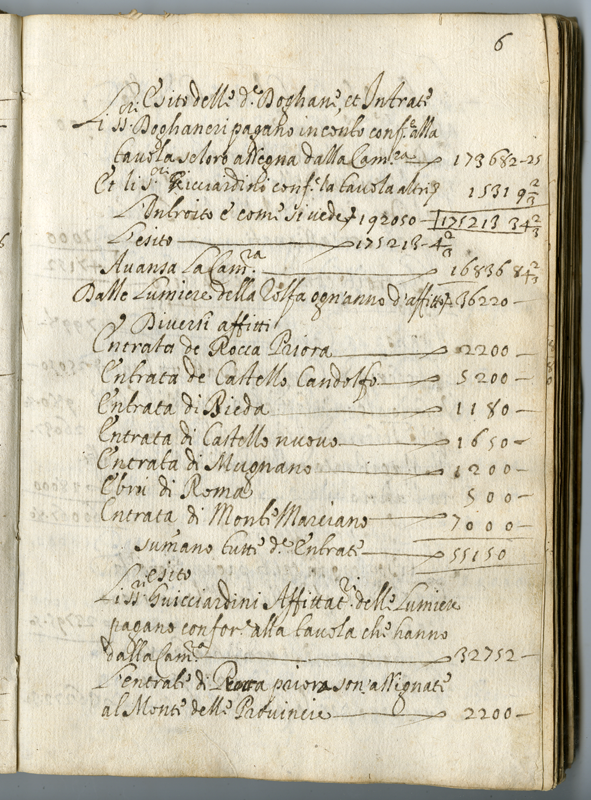 6
Esito delle d.e Doghane, et Intrate
Li SS.ri Doghaneri pagano in conto conf.e alla
tavola se loro assegna dalla Cam.ra 173682-25
Et li s.ri Ricciardini conf.e la tavola altri ▽ 1531 9 2/3
L'Introito è come si vede ▽ 192050 - 175213 34 2/3
L'esito 175213 - 4 2/3
Avansa La Cam.ra 16836 84 2/3
Dalle Lumiere della Tolfa ogn'anno d'affitto ▽ 36220 -
Diversi affitti
Entrata de Rocca Priora 2200 -
Entrata de Castello Candolfo 5200 -
Entrata di Bieda 1180 -
Entrata di Castello nuovo 1650 -
Entrata di Mugnano 1200 -
Ebrei di Roma 500 -
Entrata di Monte Marciano 7000 -
sumano tutte d.e Entrate 55150
esito
Li SS.ri Guicciardini Affittat.ri delle Lumiere
pagano confor.e alla tavola che hanno
dalla Cam.ra 32752 -
L'entrate di Rocca priora son assignate
al Monte delle Provincie 2200 -